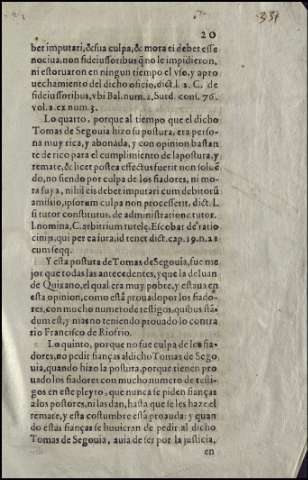 20
331
bet imputari, &sua culpa, & mora ti debet esse
nociua, non fideiussoribus q̃no le impidieron,
ni estoruaron en ningun tiempo el vso, y apro
uechamiento del dicho oficio, dict. l. 2. C. de
fideiussoribus, vbi Bal. num. 2. Surd. cons. 76.
vol. 2. ex num. 3.
Lo quarto, porque al tiempo que el dicho
Tomas de Segouia hizo su postura, era perso
na muy rica, y abonada, y con opinion bastan
te de rico para el cumplimiento de la postura, y
remate, & licet postea effectus fuerit non soluē
do, no siendo por culpa de los fiadores, ni mo
ra suya, nihil eis debet imputari cum debitorū
amissio, ipsorum culpa non processerit. dict. l.
si tutor constitutus, de administratione tutor.
l. nomina, C. arbitrium tutelę. Escobar de ratio
cinijs, qui per ea iura, id tenet dict. cap. 19. n. 22
cum seqq.
Y esta postura de Tomas de Segouia, fue me
jor que todas las antecedentes, y que la de Iuan
de Quixano, el qual era muy pobre, y estaua en
esta opinion, como està prouado por los fiado-
res, con mucho numero de testigos, quibus stā-
dum est, y mas no teniendo prouado lo contra
rio Francisco de Riofrio.
Lo quinto, porque no fue culpa de los fia-
dores, no pedir fianças al dicho Tomas de Sego
uia, quando hizo la postura, porque tienen pro
uado los fiadores con mucho numero de testi-
gos en este pleyto, que nunca se piden fianças
a los postores, ni las dan, hasta que se les haze el
remate, y esta costumbre està prouada: y quan
do estas fianças se huuieran de pedir al dicho
Tomas de Segouia, auia de ser por la justicia,
en